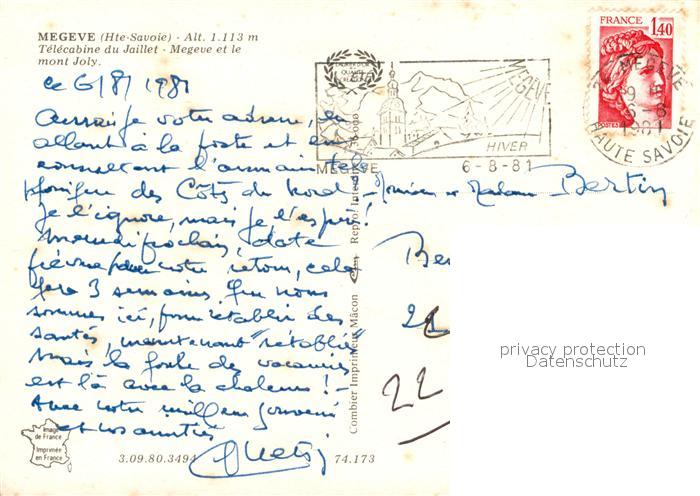 MEGEVE (Hte-Savoie) - Alt. 1.113 m
Télécabine du Jaillet - Megeve et le
mont Joly.
ce 6/8/1981
Aurai-je votre adresse, en
allant à la poste et en
consultant l'annuaire télé-
phonique des Côtes du Nord
Je l'ignore, mais je l'espère!
Mercredi prochain, date
prévue pour votre retour, cela
fera 3 semaines que nous
sommes ici, pour rétablir des
santés, maintenant "rétablies"
Mais la foule des vacanciers
est là avec la chaleur! -
Avec votre meilleur souvenir
et nos amitiés
Image
de France
Imprimée
en France
3.09.80.3494
74.173
Combier Imprimeur Mâcon
Repro. Interdite
MEGEVE
HIVER
MEGEVE
6-8-81
FRANCE
1,40
POSTES
74 MEGEVE
6-8
1981
HAUTE SAVOIE
Monsieur et Madame Bertin
Ber
22
22
privacy protection
Datenschutz